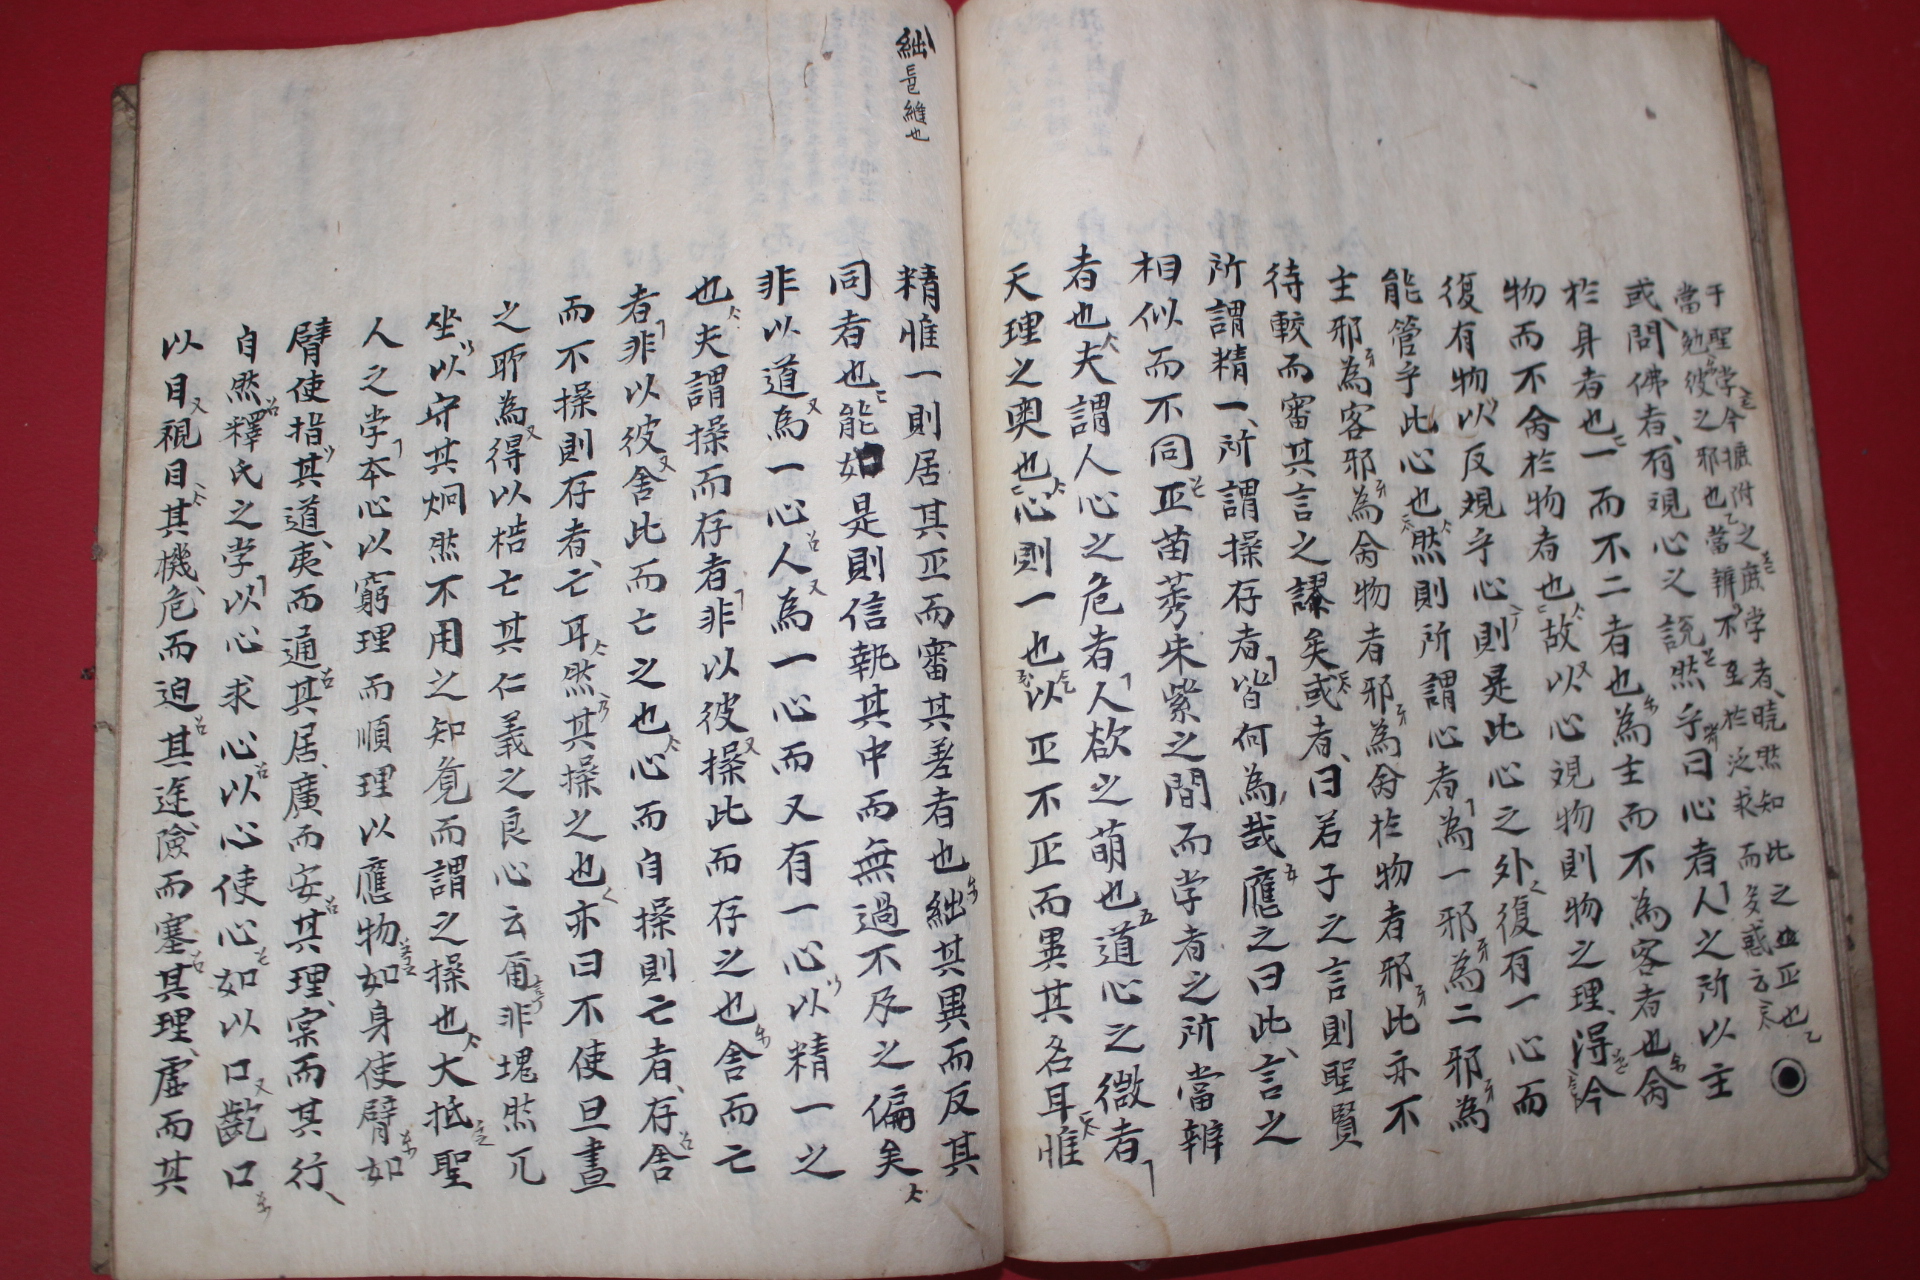 于聖学今據附之庶学者暁然知此之為正也
當勉彼之邪也當辨不至於泛求而多惑云
或問佛者有観心之說然乎曰心者人之所以主
於身者也一而不二者也為主而不為客者也命
物而不命於物者也故以心観物則物之理得今
復有物以反観乎心則是此心之外復有一心而
能管乎此心也然則所謂心者為一邪為二邪為
主邪為客邪為命物者邪為命於物者邪此亦不
待較而審其言之謬矣或者曰若子之言則聖賢
所謂精一所謂操存者皆何為哉應之曰此言之
相似而不同正苗莠朱紫之間而学者之所當辨
者也夫謂人心之危者人欲之萌也道心之微者
天理之奧也心則一也以正不正而異其名耳惟
精惟一則居其正而審其差者也絀其異而反其
同者也能如是則信執其中而無過不及之偏矣
非以道為一心人為一心而又有一心以精一之
也夫謂操而存者非以彼操此而存之也舍而亡
者非以彼舍此而亡之也心而自操則亡者存舍
而不操則存者亡耳然其操之也亦曰不使旦晝
之所為得以梏亡其仁義之良心云甬非塊然兀
坐以守其炯然不用之知覔而謂之操也大抵聖
人之学本心以窮理而順理以應物如身使臂如
臂使指其道夷而通其居廣而安其理宲而其行
自然釋氏之学以心求心以心使心如以口齕口
以目視目其機危而迫其途險而塞其理虛而其
絀